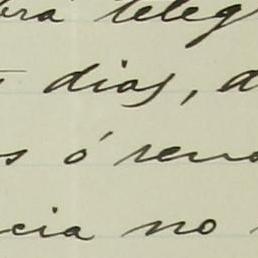 bra teleg
dias, a
s ó reno
cia no